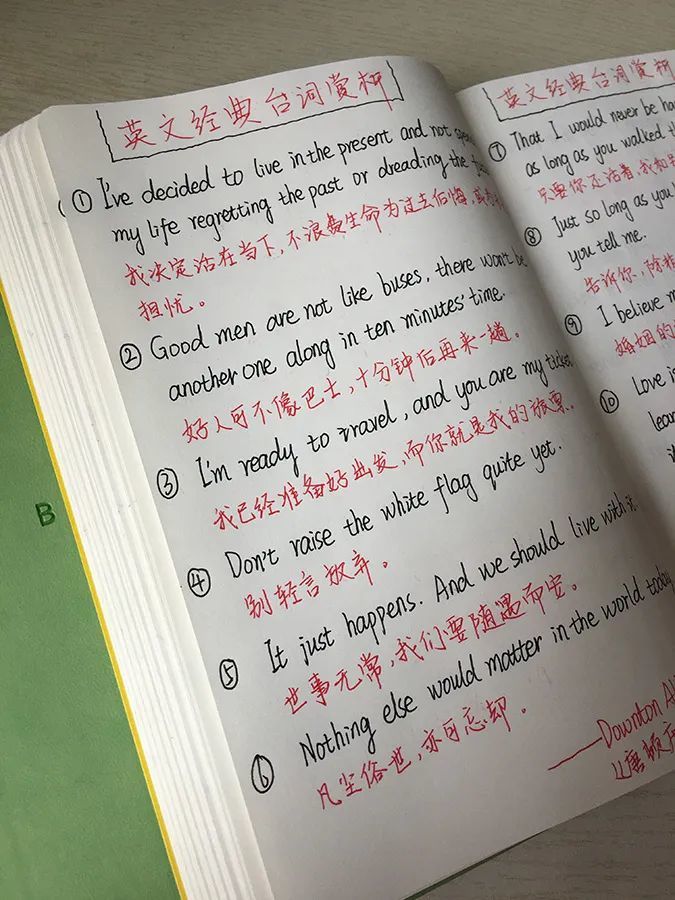 英文经典台词赏析
① I've decided to live in the present and not spend
my life regretting the past or dreading the
我决定活在当下,不浪费生命为过去后悔,或为
担忧。
② Good men are not like buses, there won't be
another one along in ten minutes' time.
好人可不像巴士,十分钟后再来一趟。
③ I'm ready to travel, and you are my ticket.
我已经准备好出发,而你就是我的旅票.
④ Don't raise the white flag quite yet.
别轻言放弃。
⑤ It just happens. And we should live with it.
世事无常,我们要随遇而安。
⑥ Nothing else would matter in the world today
凡尘俗世,亦可忘却.
——Downton
《唐顿
英文经典台词赏析
⑦ That I would never be
as long as you walked
只要你还活着,我
⑧ Just so long as you
you tell me.
告诉你,除
⑨ I believe
婚姻的
⑩ Love is
B